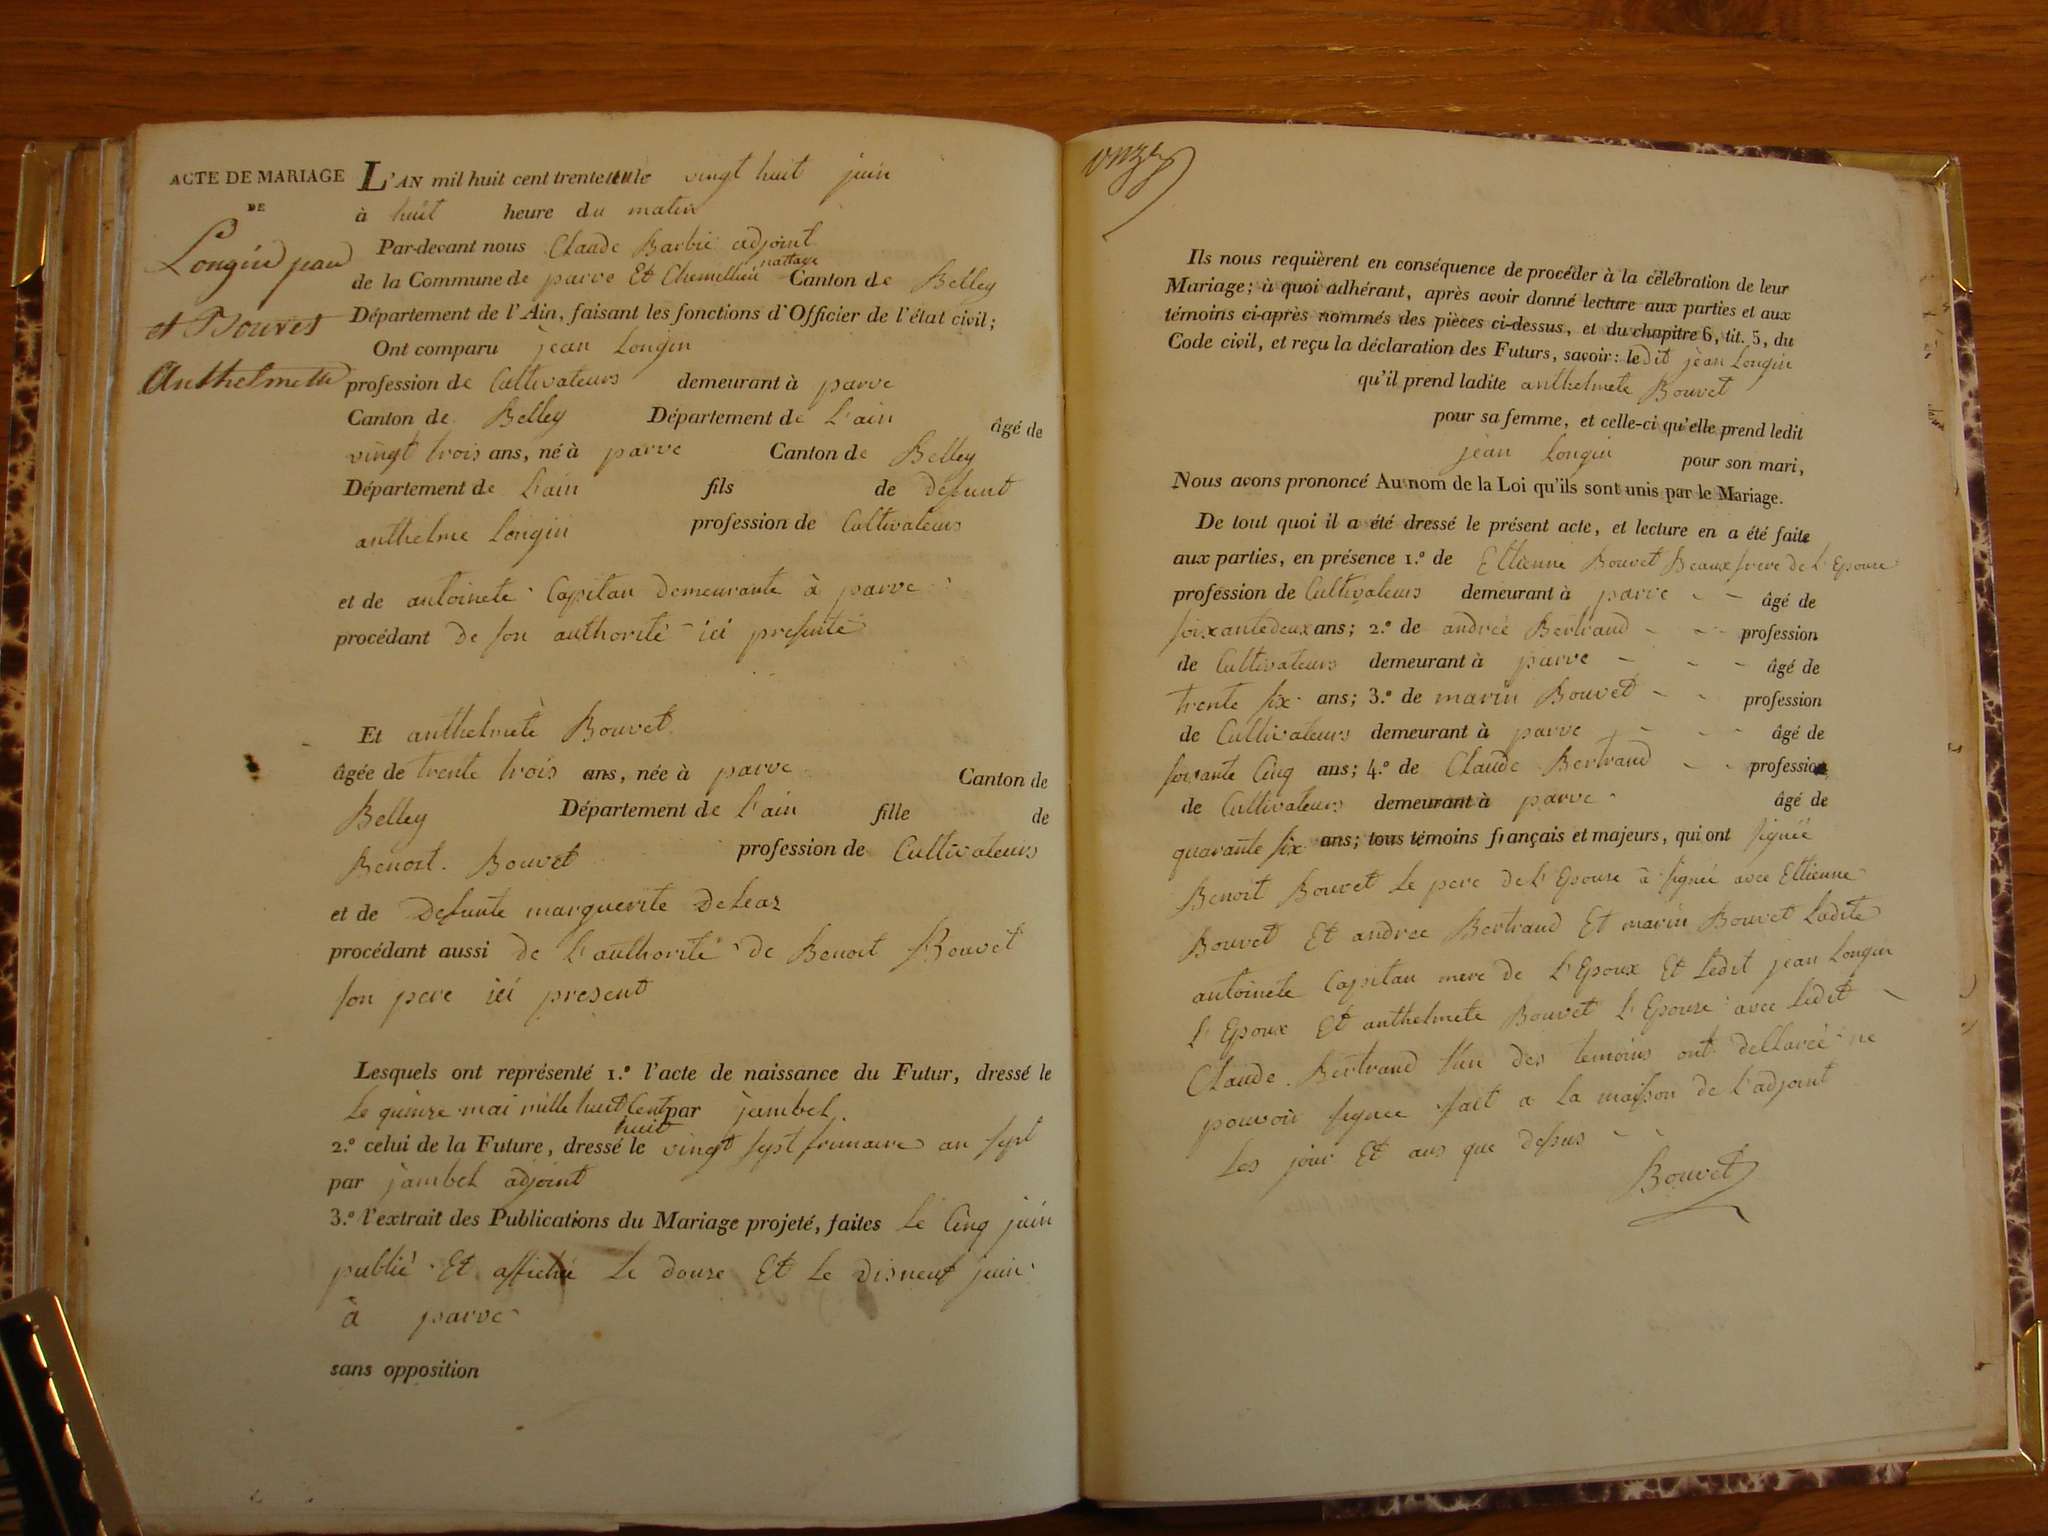 ACTE DE MARIAGE
DE
Longin jean
et Bouvet
Anthelmette
L'AN mil huit cent trente un le vingt huit juin
à huit heure du matin
Par-devant nous Claude Barbié adjoint
de la Commune de parve Et Chemillieu nattage Canton de Belley
Département de l'Ain, faisant les fonctions d'Officier de l'état civil;
Ont comparu jean Longin
profession de Cultivateurs demeurant à parve
Canton de Belley Département de L'ain âgé de
vingt trois ans, né à parve Canton de Belley
Département de L'ain fils de defunt
anthelme Longin profession de Cultivateurs
et de antoinete Capitan demeurante à parve
procédant de son authorité ici presente
Et anthelmete Bouvet
âgée de trente trois ans, née à parve Canton de
Belley Département de L'ain fille de
Benoit Bouvet profession de Cultivateurs
et de Defunte marguerite Deleaz
procédant aussi de L'authorité de Benoit Bouvet
son pere ici present
Lesquels ont représenté 1.º l'acte de naissance du Futur, dressé le
Le quinze mai mille huit Cent huit par jambel
2.º celui de la Future, dressé le vingt sept frimaire an sept
par jambel adjoint
3.º l'extrait des Publications du Mariage projeté, faites Le Cinq juin
publié Et affiché Le douze Et Le disneuf juin
à parve
sans opposition
onze
Ils nous requièrent en conséquence de procéder à la célébration de leur
Mariage; à quoi adhérant, après avoir donné lecture aux parties et aux
témoins ci-après nommés des pièces ci-dessus, et du chapitre 6, tit. 5, du
Code civil, et reçu la déclaration des Futurs, savoir: ledit jean Longin
qu'il prend ladite anthelmete Bouvet
pour sa femme, et celle-ci qu'elle prend ledit
jean Longin pour son mari,
Nous avons prononcé Au nom de la Loi qu'ils sont unis par le Mariage.
De tout quoi il a été dressé le présent acte, et lecture en a été faite
aux parties, en présence 1.º de Ettienne Bouvet Beaux frere de L'Epouse
profession de Cultivateurs demeurant à parve âgé de
soixante deux ans; 2.º de andrée Bertrand profession
de Cultivateurs demeurant à parve âgé de
trente six ans; 3.º de marin Bouvet profession
de Cultivateurs demeurant à parve âgé de
soixante Cinq ans; 4.º de Claude Bertrand profession
de Cultivateurs demeurant à parve âgé de
quarante six ans; tous témoins français et majeurs, qui ont signée
Benoit Bouvet Le pere de L'Epouse à signée avec Ettienne
Bouvet Et andree Bertrand Et marin Bouvet Ladite
antoinete Capitan mere de L'Epoux Et Ledit jean Longin
L'Epoux Et anthelmete Bouvet L'Epouse avec Ledit
Claude Bertrand L'un des temoins ont dellareé ne
pouvoir signee fait a La maison de L'adjoint
Les jour Et ans que dessus
Bouvet